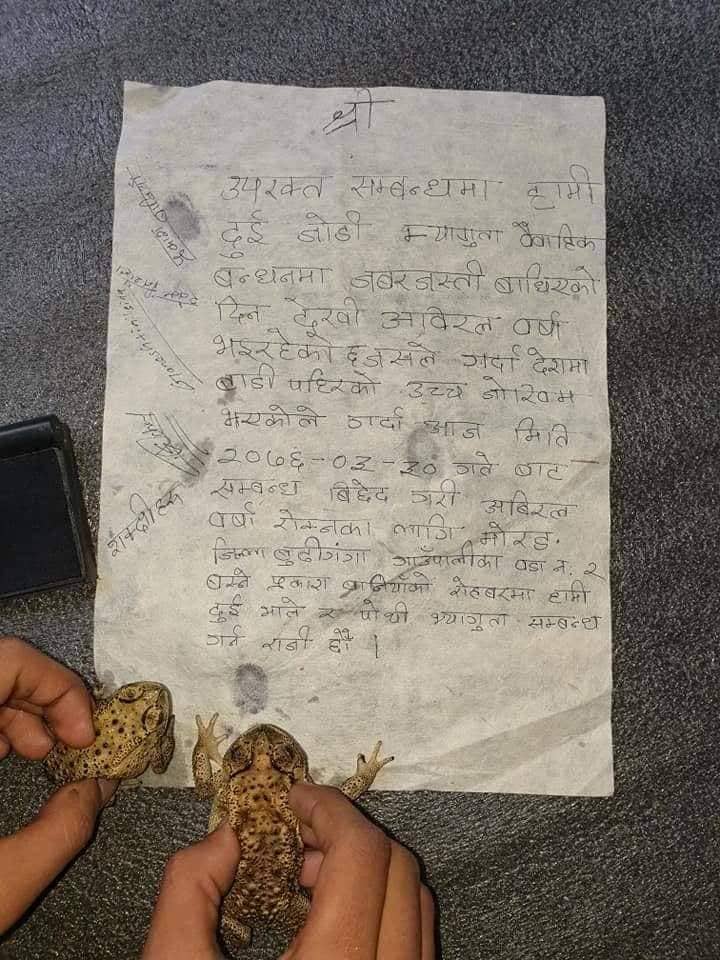 श्री
उपरक्त सम्बन्धमा हामी
दुई जोडी भ्यागुता वैवाहिक
बन्धनमा जबरजस्ती बाधिएको
दिन देखी अविरल वर्षा
भइरहेको हुजसले गर्दा देशमा
बाडी पहिरको उच्च जोखिम
भएकोले गर्दा आज मिति
२०७६-०३-३० गते बाट
सम्बन्ध बिछेद गरी अबिरल
वर्षा रोक्नका लागि मोरङ
जिल्ला बुढीगंगा गाउँपालीका वडा नं. २
बस्ने प्रकाश बानियाँको रोहबरमा हामी
दुई भाले र पोथी भ्यागुता सम्बन्ध
गर्न राजी छौं ।